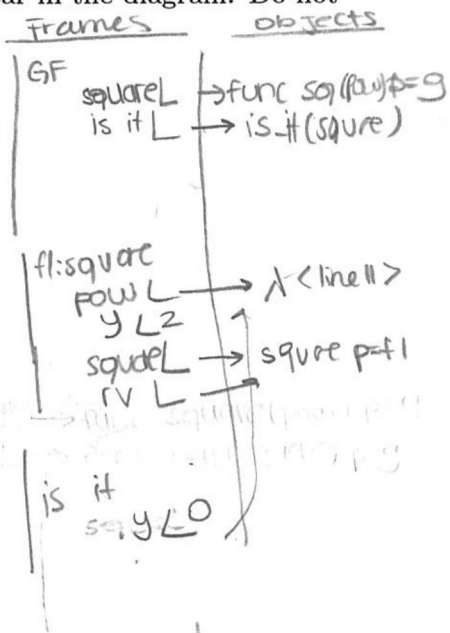 ar in the diagram. Do not
Frames Objects
GF
square → func sq(pow) p=g
is it → is_it(squre)
f1:square
pow → λ <line 11>
y 2
squae → squre p=f1
rv
is it
y 0